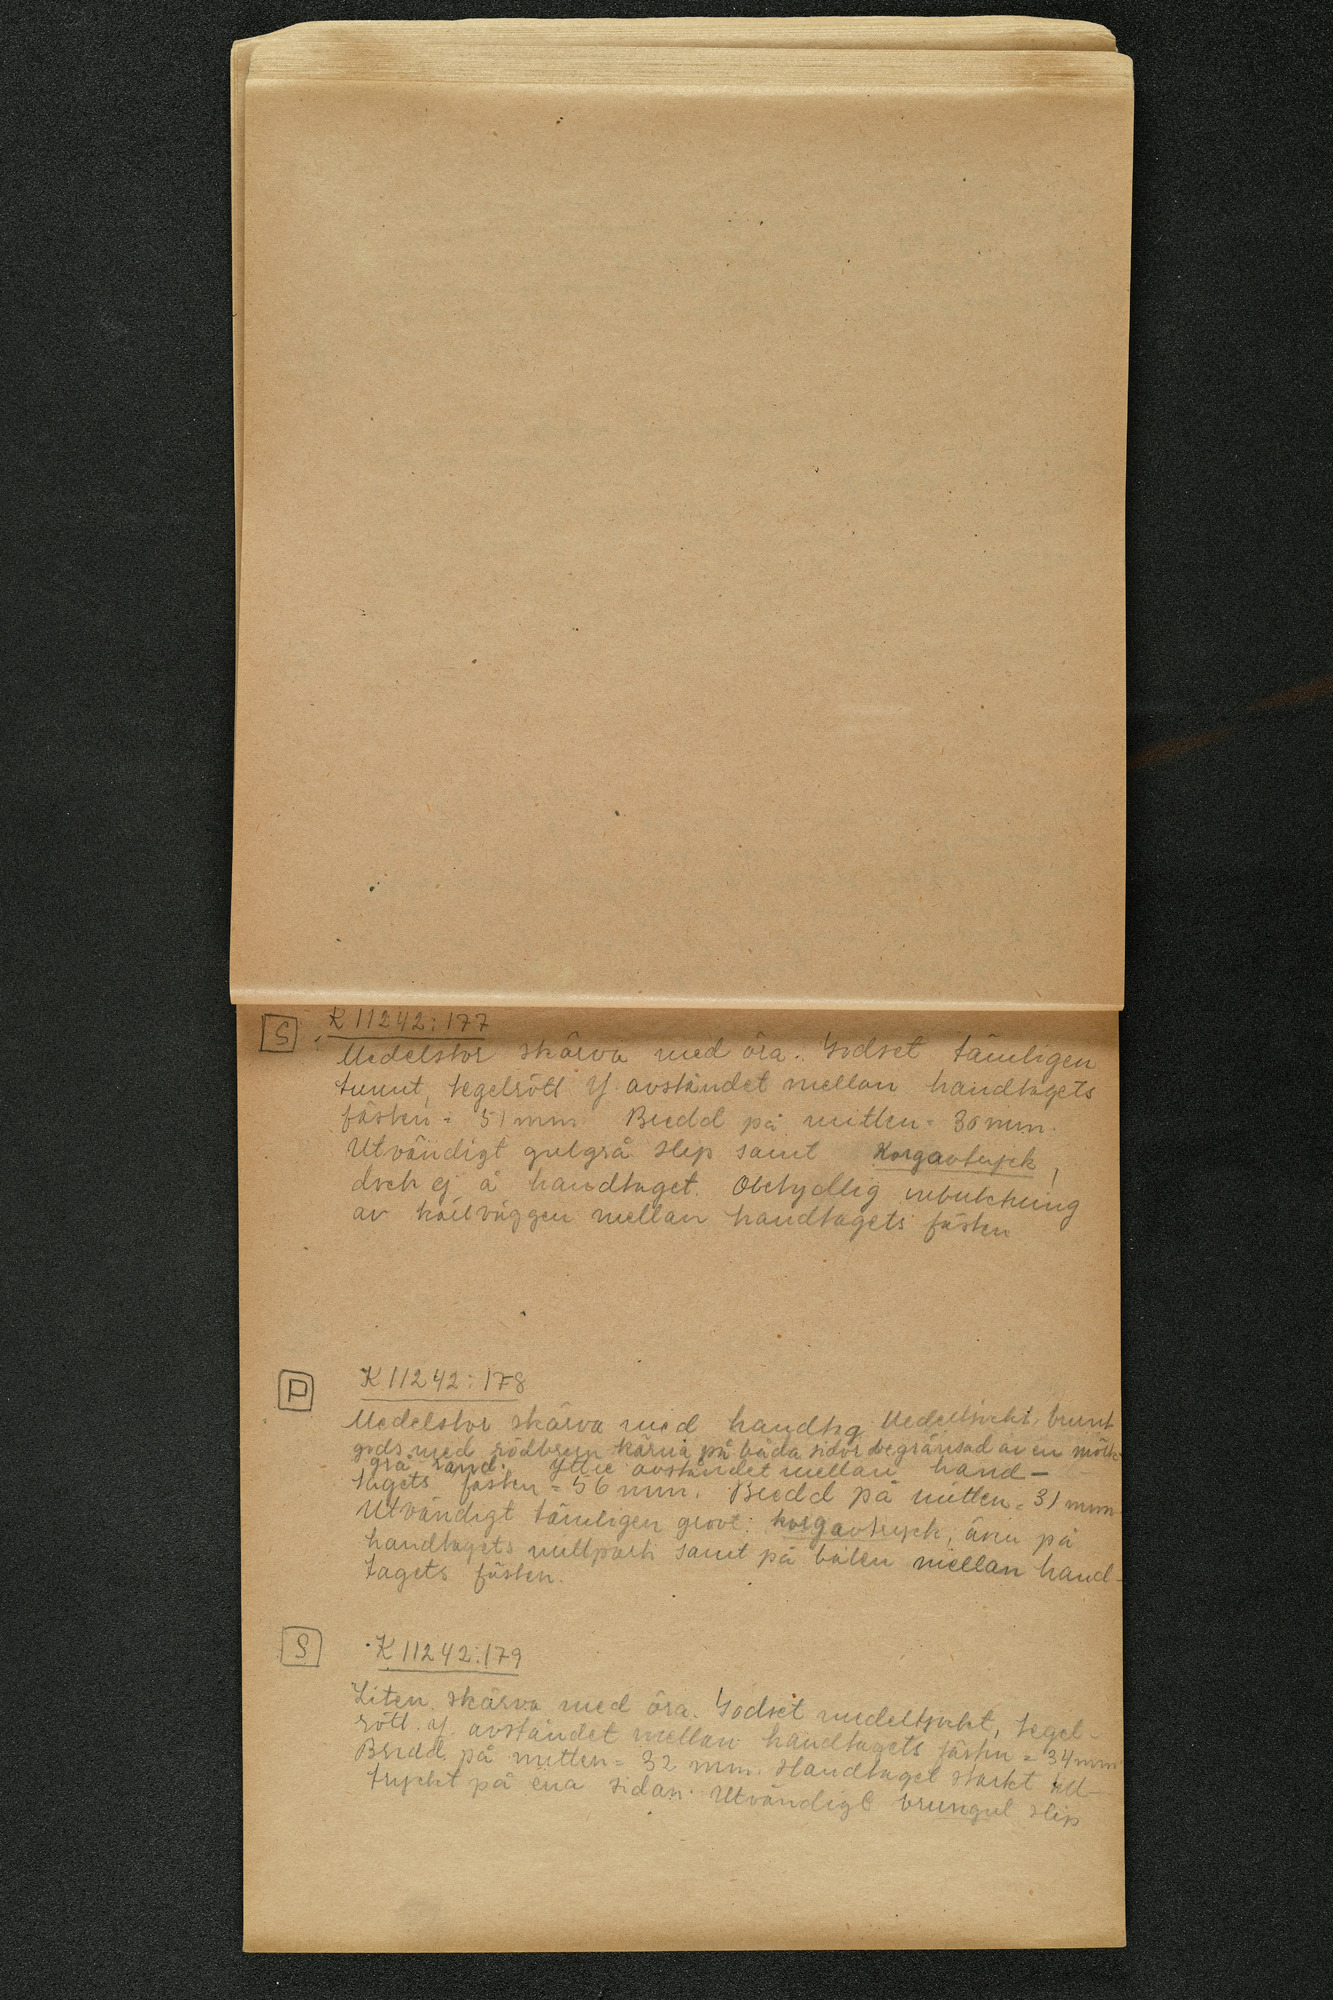 S K 11242:177
Medelstor skärva med öra. Godset tämligen
tunnt, tegelrött Y. avståndet mellan handtagets
fästen = 51 mm Bredd på mitten = 30 mm.
Utvändigt gulgrå slip samt Korgavtryck,
doch ej å handtaget. Obetydlig inbuktning
av kärlväggen mellan handtagets fästen
P K 11242:178
Medelstor skärva med handtag Medeltjockt, brunt
gods med rödbrun kärna på båda sidor begränsad av en mörk-
grå rand. Yttre avståndet mellan hand-
tagets fästen = 56 mm. Bredd på mitten = 31 mm
Utvändigt tämligen grovt korgavtryck, även på
handtagets mittparti samt på bålen mellan hand-
tagets fästen.
S K 11242:179
Liten skärva med öra. Godset medeltjockt, tegel-
rött. Y. avståndet mellan handtagets fästen = 34 mm
Bredd på mitten = 32 mm. Handtaget starkt till-
tryckt på ena sidan. Utvändigt brungul slip